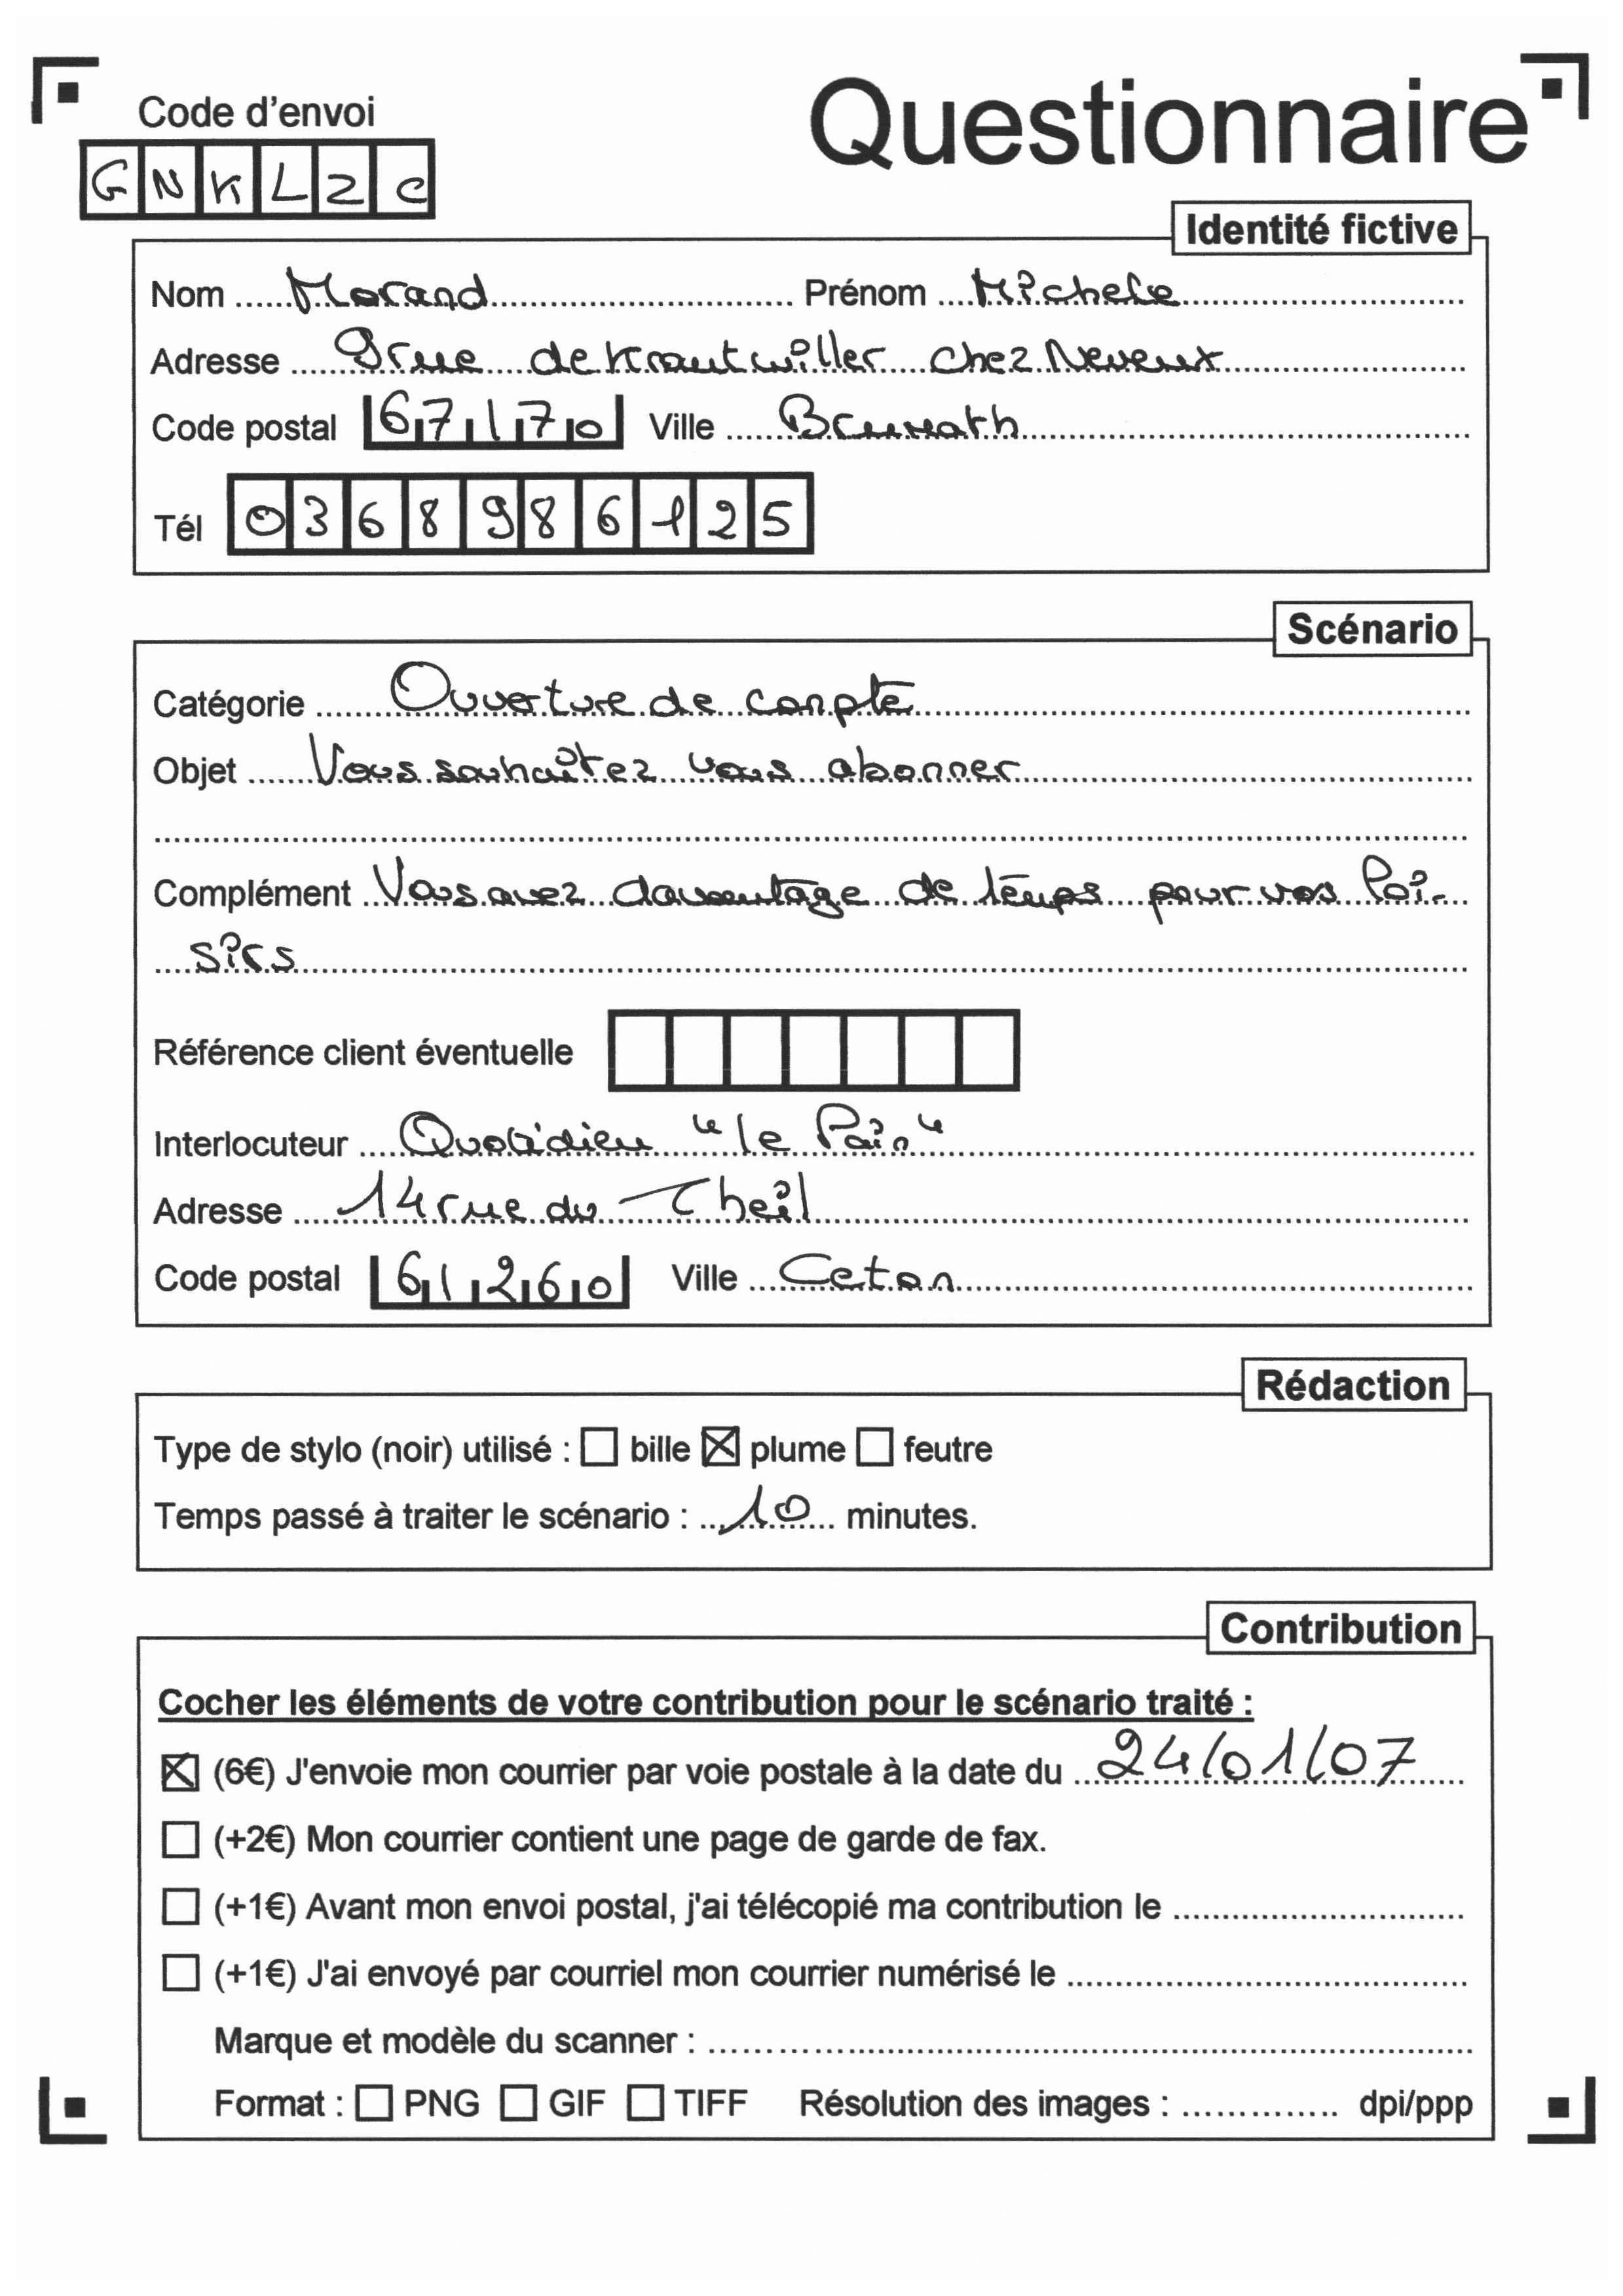 Questionnaire
Code d'envoi
GNKLZC
Identité fictive
Nom Morand Prénom Michele
Adresse 9 rue de Krautwiller chez Neveux
Code postal 67170 Ville Brumath
Tél 0368986125
Scénario
Catégorie Ouverture de compte
Objet Vous souhaîtez vous abonner
Complément Vous avez davantage de temps pour vos loi-
sirs
Référence client éventuelle
Interlocuteur Quotidien "le Pain"
Adresse 14 rue du Theil
Code postal 61260 Ville Ceton
Rédaction
Type de stylo (noir) utilisé : bille plume feutre
Temps passé à traiter le scénario : 10 minutes.
Contribution
Cocher les éléments de votre contribution pour le scénario traité :
(6€) J'envoie mon courrier par voie postale à la date du 24/01/07
(+2€) Mon courrier contient une page de garde de fax.
(+1€) Avant mon envoi postal, j'ai télécopié ma contribution le
(+1€) J'ai envoyé par courriel mon courrier numérisé le
Marque et modèle du scanner :
Format : PNG GIF TIFF Résolution des images : dpi/ppp